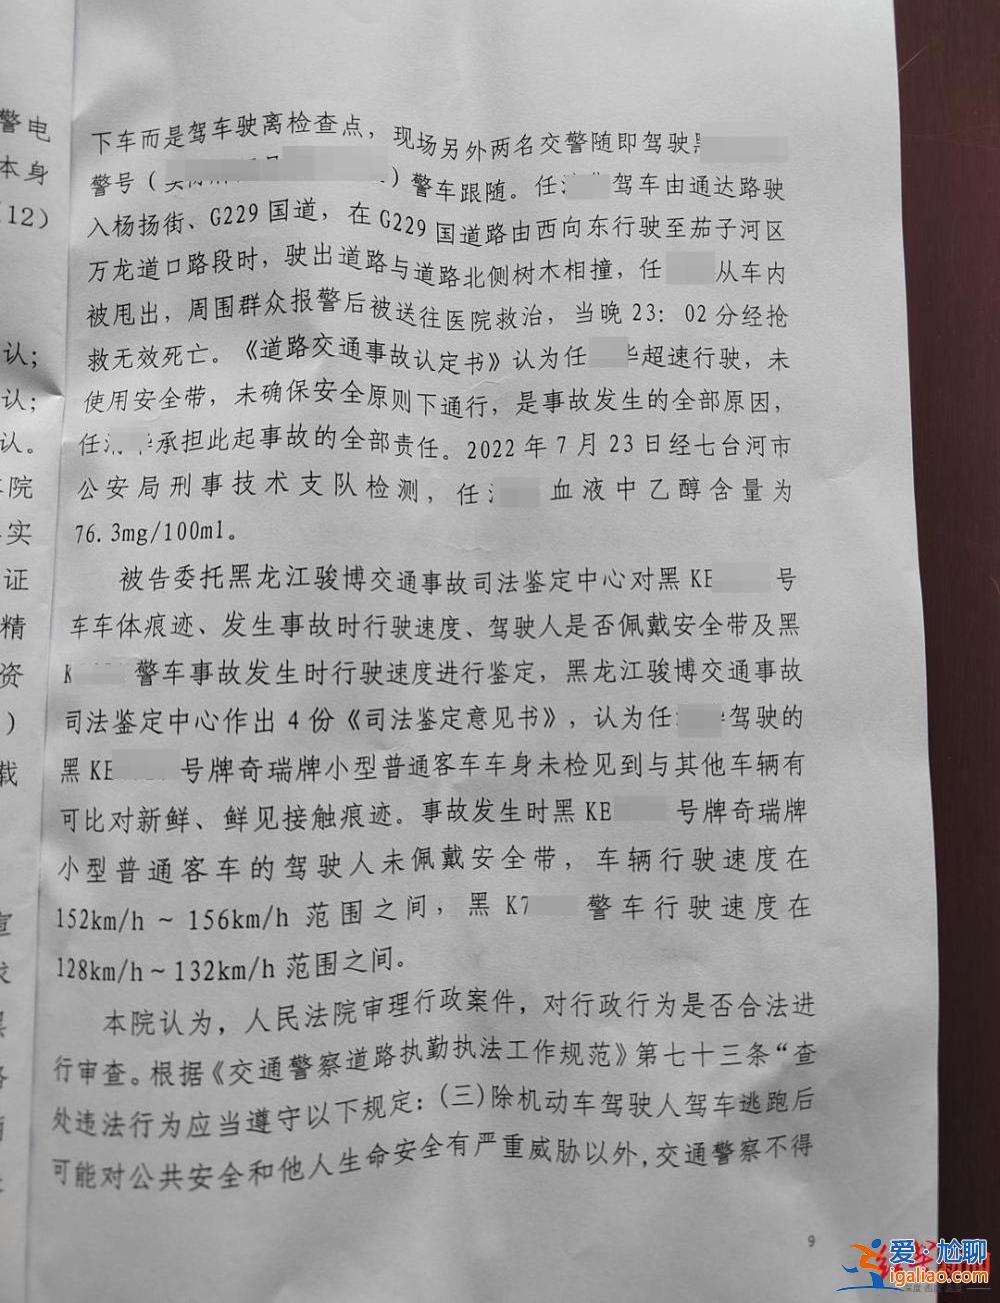 警电
本身
12)
认;
认;
认。
院
实
证
精
资
)
载
下车而是驾车驶离检查点，现场另外两名交警随即驾驶黑
警号（）警车跟随。任驾车由通达路驶
入杨扬街、G229国道，在G229国道路由西向东行驶至茄子河区
万龙道口路段时，驶出道路与道路北侧树木相撞，任从车内
被甩出，周围群众报警后被送往医院救治，当晚23：02分经抢
救无效死亡。《道路交通事故认定书》认为任华超速行驶，未
使用安全带，未确保安全原则下通行，是事故发生的全部原因，
任华承担此起事故的全部责任。2022年7月23日经七台河市
公安局刑事技术支队检测，任血液中乙醇含量为
76.3mg/100ml。
被告委托黑龙江骏博交通事故司法鉴定中心对黑KE号
车车体痕迹、发生事故时行驶速度、驾驶人是否佩戴安全带及黑
K警车事故发生时行驶速度进行鉴定，黑龙江骏博交通事故
司法鉴定中心作出4份《司法鉴定意见书》，认为任驾驶的
黑KE号牌奇瑞牌小型普通客车车身未检见到与其他车辆有
可比对新鲜、鲜见接触痕迹。事故发生时黑KE号牌奇瑞牌
小型普通客车的驾驶人未佩戴安全带，车辆行驶速度在
152km/h～156km/h范围之间，黑K7警车行驶速度在
128km/h～132km/h范围之间。
本院认为，人民法院审理行政案件，对行政行为是否合法进
行审查。根据《交通警察道路执勤执法工作规范》第七十三条“查
处违法行为应当遵守以下规定：(三)除机动车驾驶人驾车逃跑后
可能对公共安全和他人生命安全有严重威胁以外,交通警察不得
9
爱·尬聊
igaliao.com